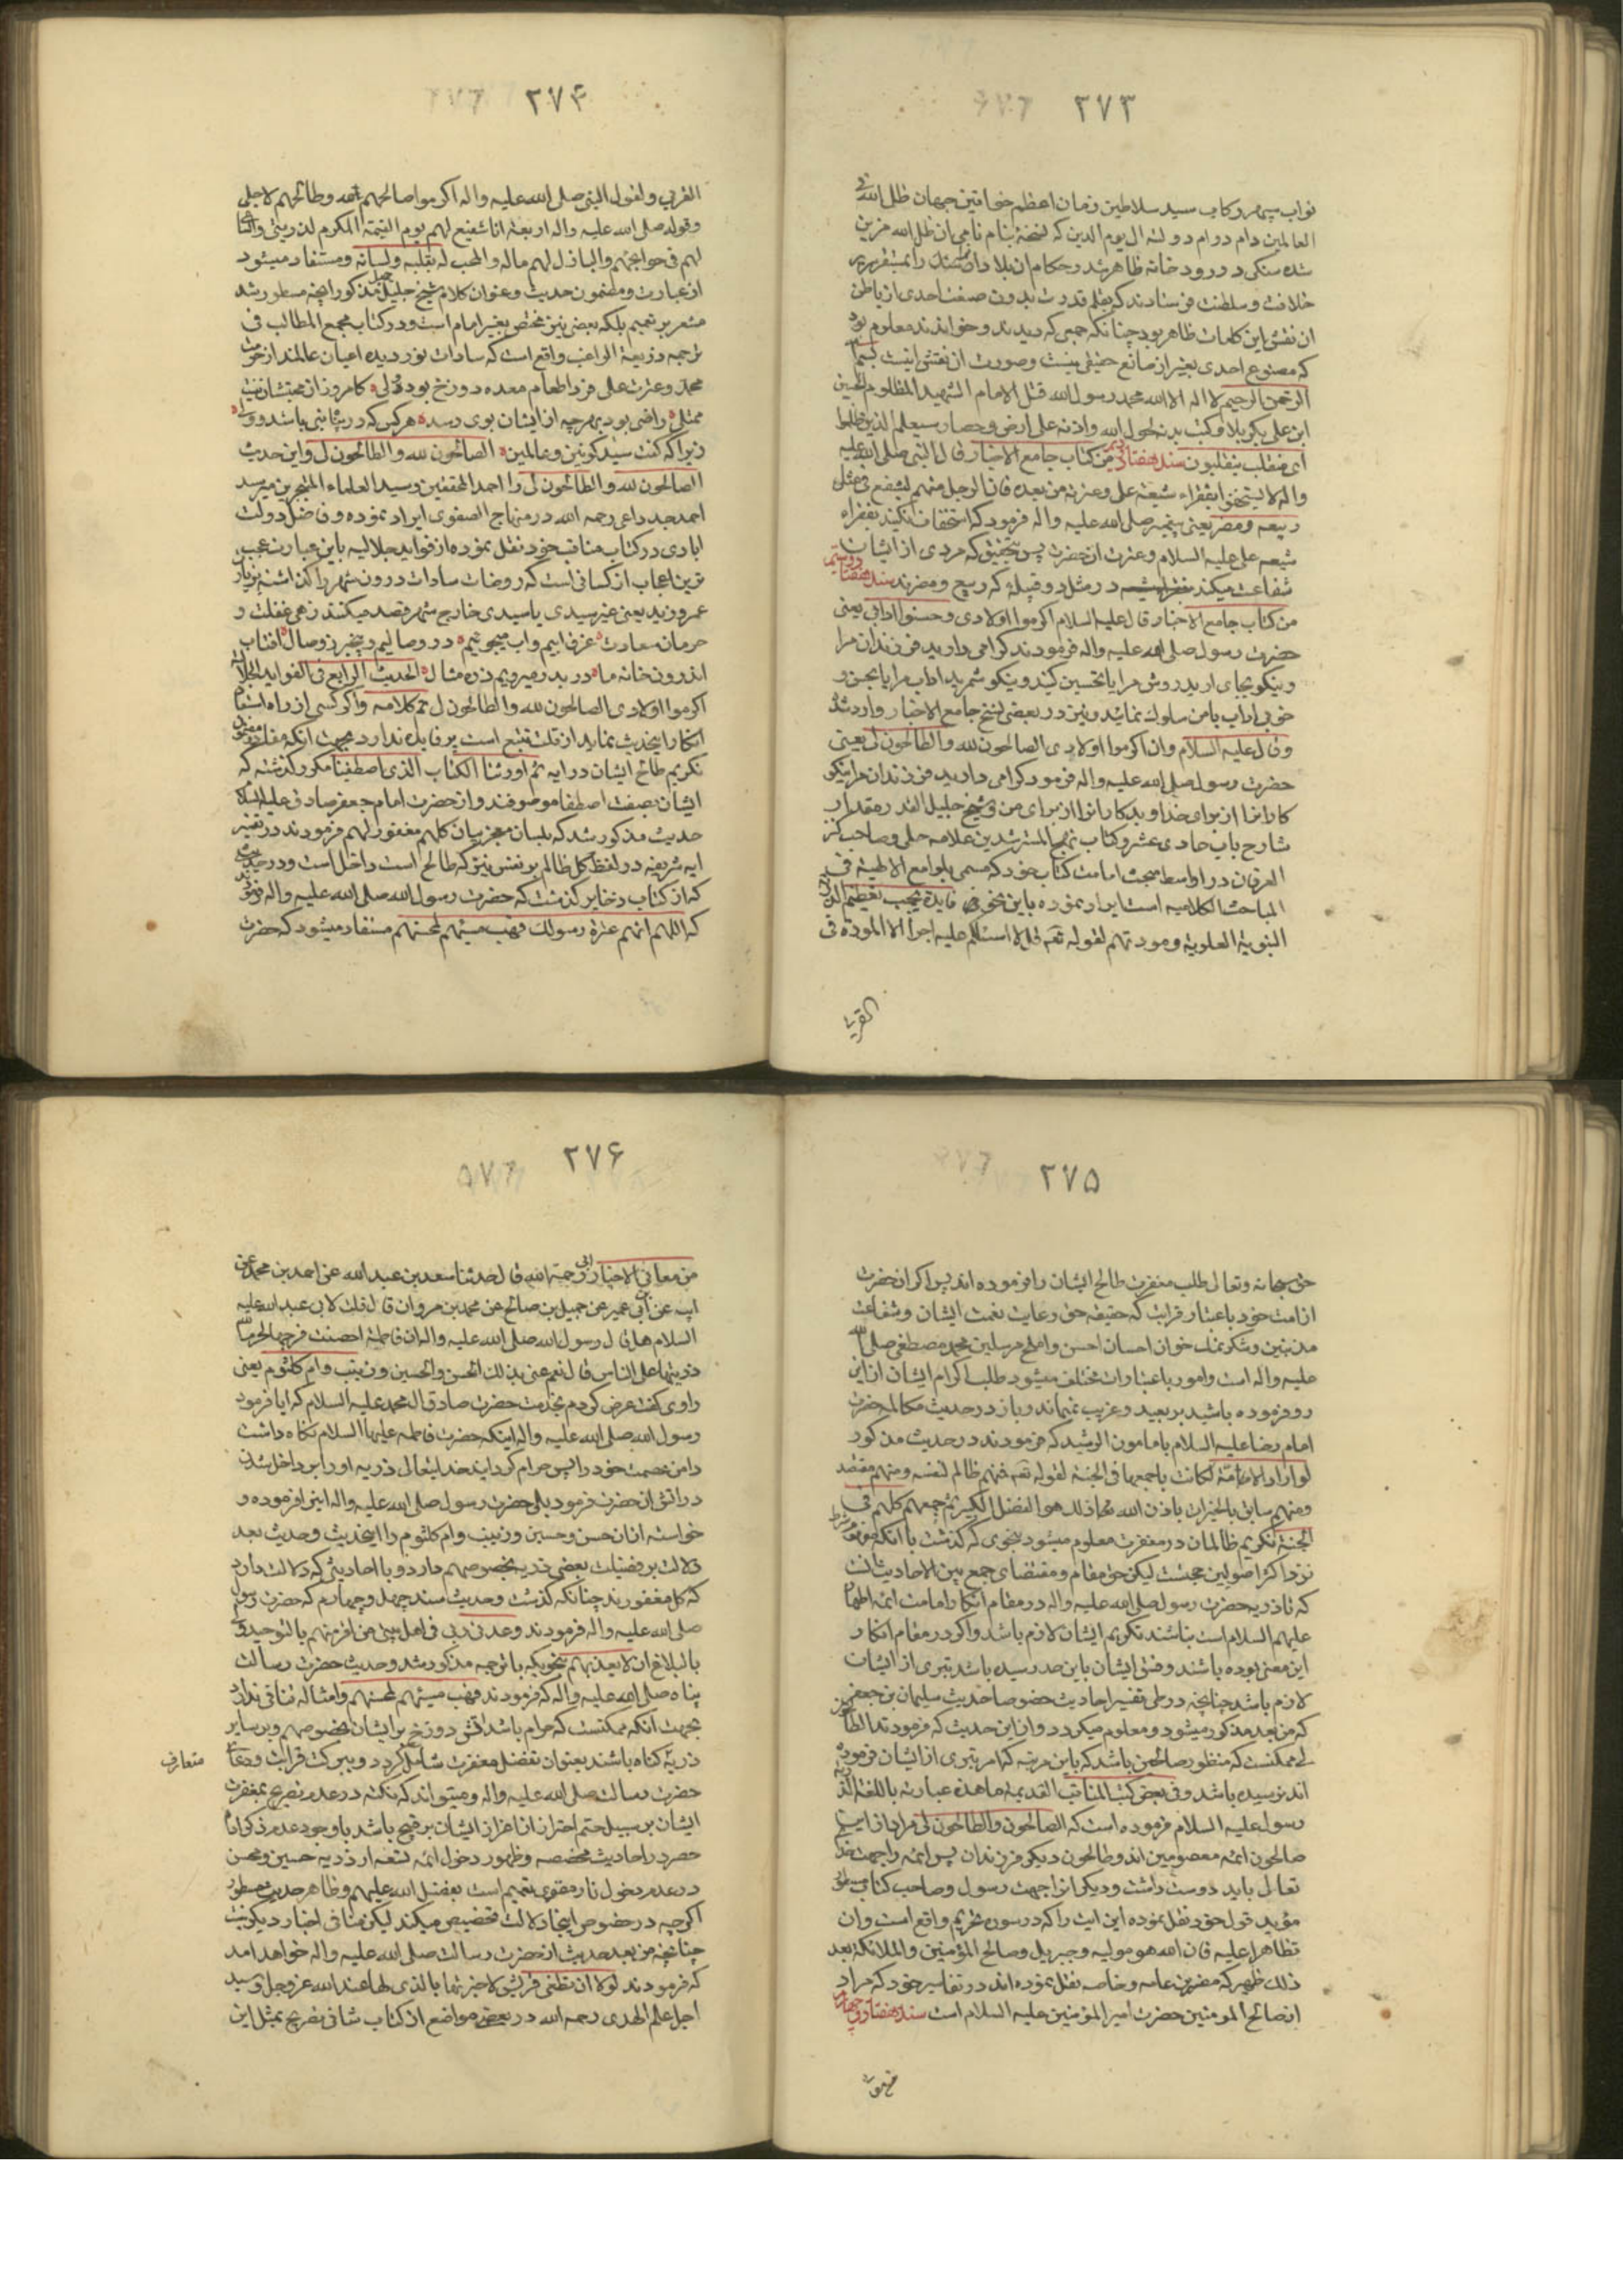 ۲۷۳
نواب سپهر رکاب سید سلاطین زمان اعظم خواقین جهان ظل الله فی
العالمین دام دوام دولته الی یوم الدین که نسخهٔ بنام نامی ان ظل الله مزین
شده سنکی در رودخانه ظاهر شد و حکام ان بلاد ان سنک را بمستقر سریر
خلافت و سلطنت فرستادند که بقلم قدرت بدون صنعت احدی از باطن
ان نقش این کلمات ظاهر بود چنانکه جمعی که دیدند و خواندند معلوم بود
که مصنوع احدی بغیر از صانع حقیقی نیست وصورت ان نقش اینست بسم الله
الرحمن الرحیم لا اله الا الله محمد رسول الله قتل الامام الشهید المظلوم الحسین
ابن علی بکربلا و کتب بدمه بحول الله واذنه علی ارض وحصار سیعلم الذین ظلموا
ای منقلب ینقلبون سند هفتاد من کتاب جامع الاخبار قال النبی صلی الله علیه
واله لا یستخفوا بفقراء شیعة علی وعترته من بعده فان الرجل منهم لیشفع فی مثل
ربیعه ومضر یعنی پیغمبر صلی الله علیه واله فرمود که استخفاف نکنید بفقراء
شیعه علی علیه السلام وعترت ان حضرت پس بتحقیق که مردی از ایشان
شفاعت میکند در مثل دو قبیله که ربیع ومضرند سند هفتاد
من کتاب جامع الاخبار قال علیه السلام اکرموا اولادی وحسنوا ادابی یعنی
حضرت رسول صلی الله علیه واله فرمودند کرامی دارید فرزندان مرا
و نیکو بجای ارید روش مرا یا تحسین کنید و نیکو شمرید اداب مرا یا بحسن و
خوبی اداب با من سلوک نمائید و نیز در بعضی نسخ جامع الاخبار وارد شده
وقال علیه السلام وان اکرموا اولادی الصالحون لله والطالحون لی یعنی
حضرت رسول صلی الله علیه واله فرمود کرامی دارید فرزندان مرا نیکو
کارانرا از برای خدا و بدکارانرا از برای من وشیخ جلیل القدر مقداد
شارح باب حادی عشر وکتاب نهج المسترشدین علامه حلی وصاحب کنز
العرفان در اواسط مبحث امامت کتاب خود که مسمی بلوامع الالهیة فی
المباحث الکلامیه است ایراد نموده باین نحو فایدة یجب تعظیم الذریة
النبویة العلویة ومودتهم لقوله تعه قل لا اسئلکم علیه اجرا الا المودة فی
القربی
۲۷۴
القربی ولقول النبی صلی الله علیه واله اکرموا صالحهم لله وطالحهم لاجلی
وقوله صلی الله علیه واله اربعة انا شفیع لهم یوم القیمة المکرم لذریتی والساعی
لهم فی حوائجهم والباذل لهم ماله والمحب له بقلبه ولسانه ومستفاد میشود
از عبارت ومضمون حدیث وعنوان کلام شیخ جلیل مذکور انچه مسطور شد
مشعر بر تعمیم بلکه بعضی نیز مختص بغیر امام است ودر کتاب مجمع المطالب فی
ترجمه ذریعة الراغب واقع است که سادات نور دیده اعیان عالمند از حرمت
محمد وعزت علی فردا طعام معده دوزخ بود دلی کامروز از محبتشان نیست
ممتلی راضی بود بهرچه از ایشان بوی رسد هرکس که در
زیرا که گفت سید کونین وعالمین الصالحون لله والطالحون لی واین حدیث
الصالحون لله والطالحون لی را احمد المحققین وسید العلماء المتبحرین میر سید
احمد جد داعی رحمه الله در منهاج الصفوی ایراد نموده وفاضل دولت
ابادی در کتاب مناقب خود نقل نموده از فواید جلالیه باین عبارت عجب
ترین اعجاب از کسانی است که روضات سادات درون شهر را کذاشته بزیارت
عمرو زید یعنی غیر سیدی یا سیدی خارج شهر قصد میکنند زهی غفلت و
حرمان سعادت غرق ابیم واب میجوئیم در وصالیم و بیخبر ز وصال افتاب
اندرون خانه ما در بدر میرویم ذره مثال الحدیث الرابع فی الفواید الجلالیة
اکرموا اولادی الصالحون لله والطالحون لی تم کلامه واکر کسی از راه استبعاد
انکار اینحدیث نماید از قلت تتبع است بر قایل ندارد بجهت انکه
تکریم طالح ایشان در ایه ثم اورثنا الکتاب الذی اصطفینا مکرر کذشته که
ایشان بصفت اصطفا موصوفند واز حضرت امام جعفر صادق علیه السلام
حدیث مذکور شد که بلسان معجز بیان کلهم مغفور لهم فرمودند در تفسیر
ایه شریفه در لفظ کل ظالم بر نفس نیز که طالح است داخل است ودر حدیثی
که از کتاب ذخایر کذشت که حضرت رسول الله صلی الله علیه واله فرمودند
که اللهم انهم عترة رسولک فهب مسیئهم لمحسنهم مستفاد میشود که حضرت
۲۷۵
حق سبحانه وتعالی طلب مغفرت طالح ایشان را فرموده اند پس اکر ان حضرت
از امت خود باعتبار قرابت که حقیقه حق رعایت نعمت ایشان وشفاعت
مذنبین وشکر نمک خوان احسان احسن واملح مرسلین محمد مصطفی صلی الله
علیه واله است وامور باعتبارات مختلف میشود طلب اکرام ایشان از این
رو فرموده باشید بر بعید وغریب نمیماند وباز در حدیث مکالمه حضرت
امام رضا علیه السلام با مامون الرشید که فرمودند در حدیث مذکور
لو اراد الامة لکانت باجمعها فی الجنة لقوله تعه فمنهم ظالم لنفسه ومنهم مقتصد
ومنهم سابق بالخیرات باذن الله ذلک هو الفضل الکبیر ثم جمعهم کلهم فی
الجنة تکریم ظالمان در مغفرت معلوم میشود بنحوی که کذشت با انکه
نزد اکثر اصولیین حجت است لیکن حق مقام ومقتضای جمع بین الاحادیث انست
که تا ذریه حضرت رسول صلی الله علیه واله در مقام انکار امامت ائمه اطهار
علیهم السلام است نباشند تکریم ایشان لازم باشد واکر در مقام انکار
این معنی بوده باشند وفسق ایشان باین حد رسیده باشد تبری از ایشان
لازم باشد چنانچه در طی تفسیر احادیث خصوصا حدیث سلیمان بن جعفر
که من بعد مذکور میشود ومعلوم میکردد واز این حدیث که فرمودند الطالحون
لی ممکنست که منظور صالحین باشد که باین مرتبه که امر بتبری از ایشان فرموده
اند نرسیده باشد وفی بعض کتب المناقب القدیمة ما هذه عبارته باللغة
رسول علیه السلام فرموده است که الصالحون والطالحون لی مراد از این
صالحون ائمه معصومین اند وطالحون دیکر فرزندان پس ائمه را جهت خدای
تعالی باید دوست داشت ودیکرانرا جهت رسول وصاحب کتاب مسطور
مؤید قول خود نقل نموده این ایت را که در سوره تحریم واقع است وان
تظاهرا علیه فان الله هو مولیه وجبریل وصالح المؤمنین والملائکة بعد
ذلک ظهیر که مفسرین عامه وخاصه نقل نموده اند در تفاسیر خود که مراد
از صالح المومنین حضرت امیر المؤمنین علیه السلام است سند هفتاد و چهارم
۲۷۶
من معانی الاخبار ابی رحمة الله قال حدثنا سعد بن عبد الله عن احمد بن محمد عن
ابیه عن ابن ابی عمیر عن جمیل بن صالح عن محمد بن مروان قال قلت لابی عبد الله علیه
السلام هل قال رسول الله صلی الله علیه واله ان فاطمة احصنت فرجها فحرم الله
ذریتها علی الناس قال نعم عنی بذلک الحسن والحسین وزینب وام کلثوم یعنی
راوی کفت عرض کردم بخدمت حضرت صادق ال محمد علیه السلام که ایا فرمود
رسول الله صلی الله علیه واله اینکه حضرت فاطمه علیها السلام نکاه داشت
دامن عصمت خود را پس حرام کردانید خدایتعالی ذریه او را بر داخل شدن
در اتش ان حضرت فرمود بلی حضرت رسول صلی الله علیه واله اینرا فرموده و
خواسته از ان حسن وحسین وزینب وام کلثوم را اینحدیث وحدیث بعد
دلالت بر فضیلت بعضی ذریه بخصوصهم دارد وبا احادیثی که دلالت دارد
که کل مغفورند چنانکه کذشت وحدیث سند چهل وچهارم که حضرت رسول
صلی الله علیه واله فرمودند وعدنی ربی فی اهل بیتی من اقر منهم بالتوحید ولی
بالبلاغ ان لا یعذبهم بنحویکه با ترجمه مذکور شد وحدیث حضرت رسالت
پناه صلی الله علیه واله که فرمودند فهب مسیئهم لمحسنهم وامثاله منافی ندارد
بجهت انکه ممکنست که حرام باشد اتش دوزخ بر ایشان بخصوصهم وبر سایر
ذریه کناه باشند بعنوان تفضل مغفرت شامل کردد وببرکت قرابت ودعای
متعارف
حضرت رسالت صلی الله علیه واله ومیتواند که نکته در عدم تصریح بمغفرت
ایشان بر سبیل حتم احتراز از اغرار ایشان بر قبیح باشد با وجود عدم ذکر ادات
حصر در احادیث مخصصه وظهور دخول ائمه تسعه از ذریه حسین ومحسن
در عدم دخول نار مقوی تعمیم است بفضل الله علیهم وظاهر حدیث مسطور
اکرچه در خصوص اینجا دلالت تخصیص میکند لیکن منافی اخبار دیکر نیست
چنانچه من بعد حدیث از حضرت رسالت صلی الله علیه واله خواهد امد
که فرمودند لولا ان تطغی قریش لاخبرتها بالذی لها عند الله عز وجل وسید
اجل علم الهدی رحمه الله در بعضی مواضع از کتاب شافی تصریح بمثل این